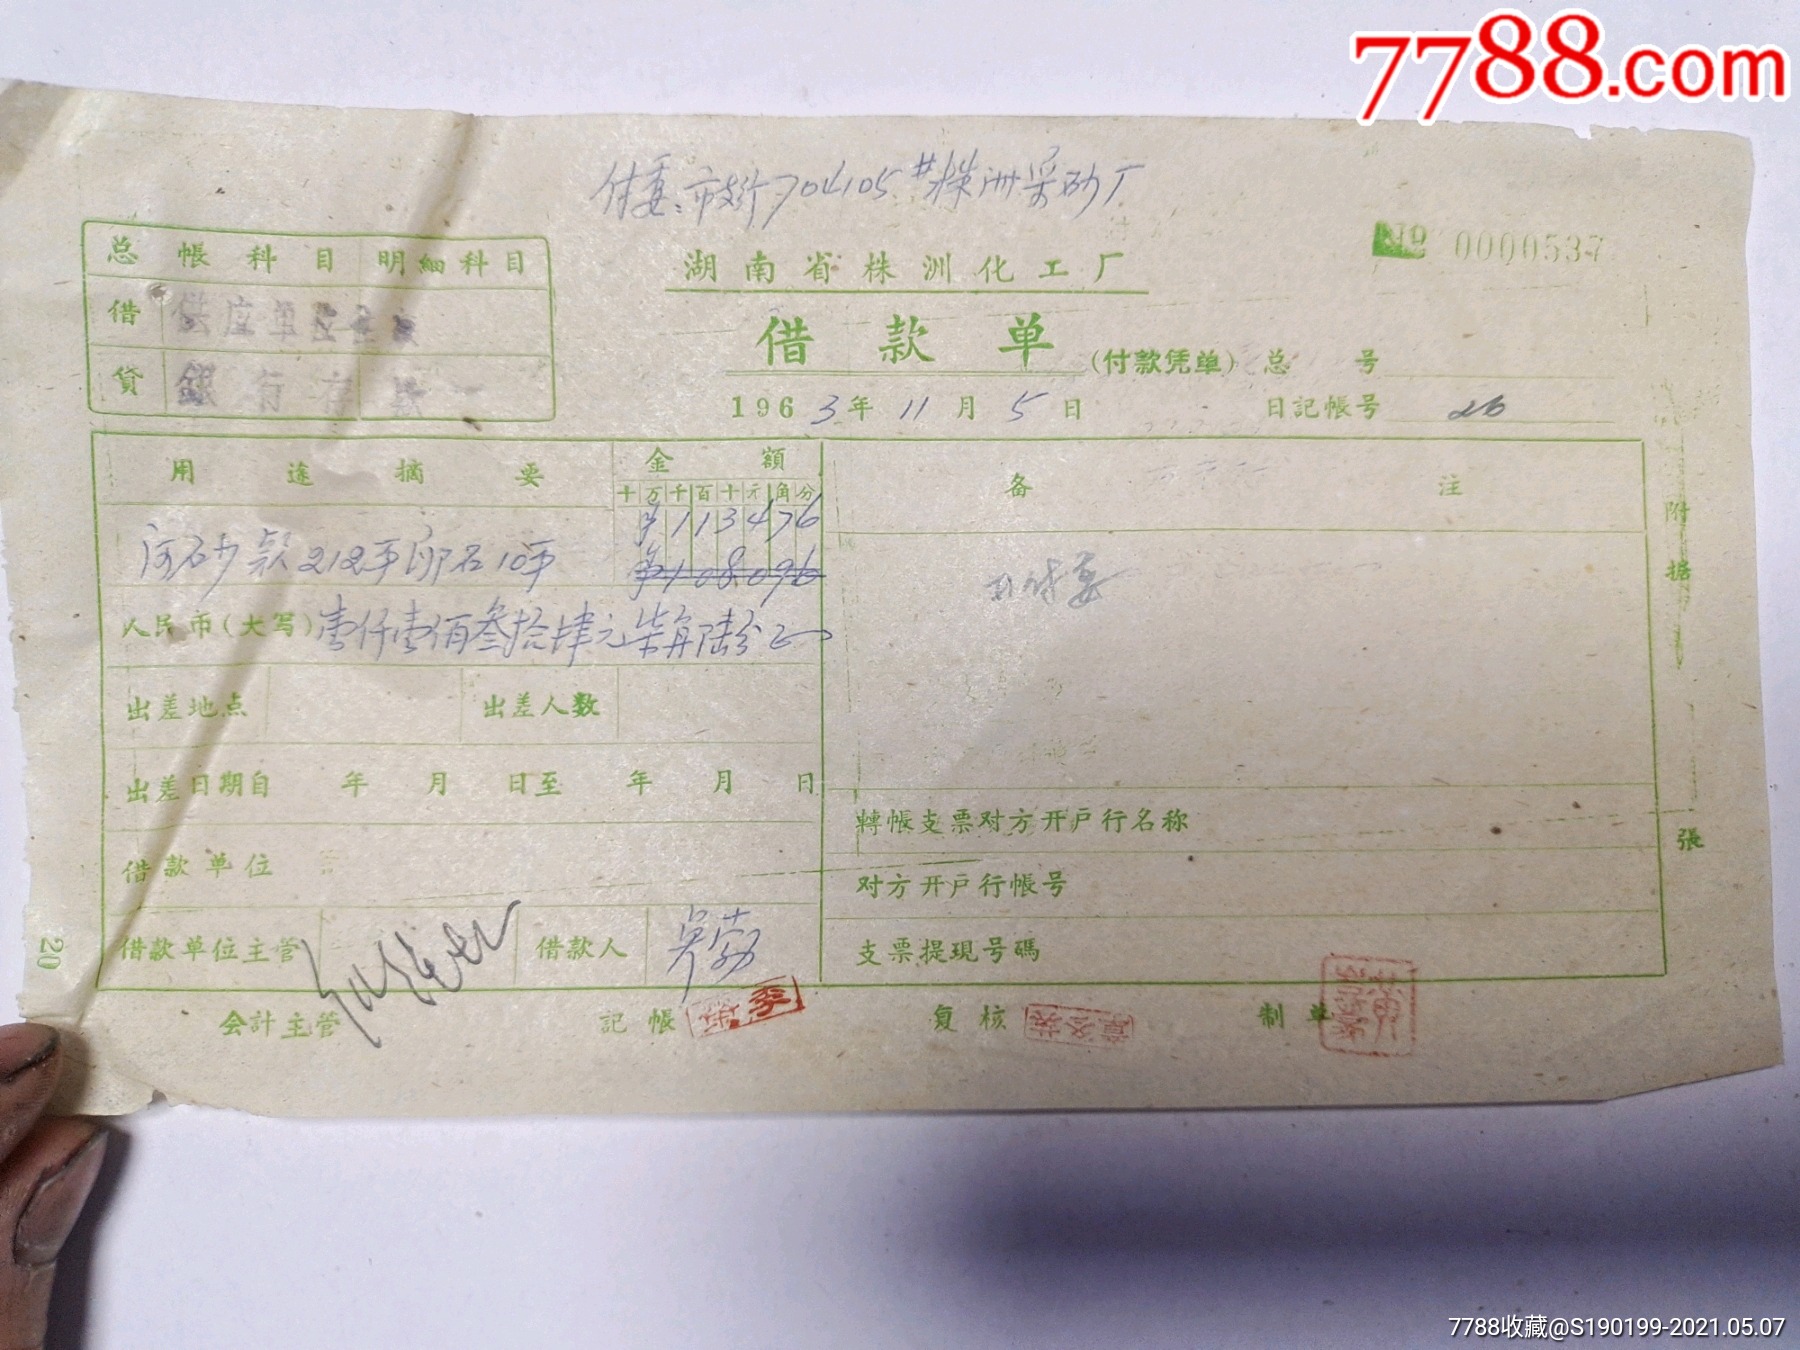 7788.com
付委:市支行704105#株洲采砂厂
湖南省株洲化工厂
№ 0000537
借款单 (付款凭单) 总 号
1963年11月5日 日記帳号 26
总帳科目 明細科目
借 供应单位
貸 銀行存款
用途摘要 金額 备注
十万千百十元角分
河砂款212平卵石10平
113476
108096
人民币(大写)壹仟壹佰叁拾肆元柒角陆分正
付委
出差地点 出差人数
出差日期自 年 月 日至 年 月 日
借款单位
借款单位主管 借款人
轉帳支票对方开户行名称
对方开户行帳号
支票提現号碼
附
据
張
20
会計主管 記帳 复核 制单
7788收藏@S190199-2021.05.07